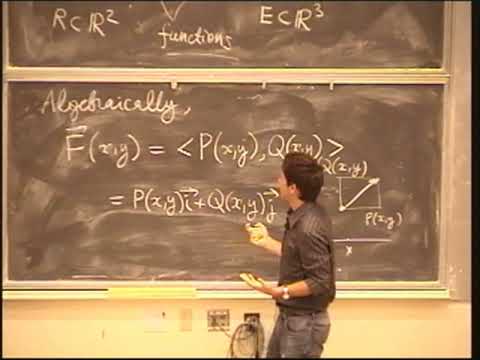 R⊂ℝ² functions E⊂ℝ³
Algebraically,
F⃗(x,y) = <P(x,y), Q(x,y)>
= P(x,y)i⃗ + Q(x,y)j⃗
Q(x,y)
P(x,y)
x